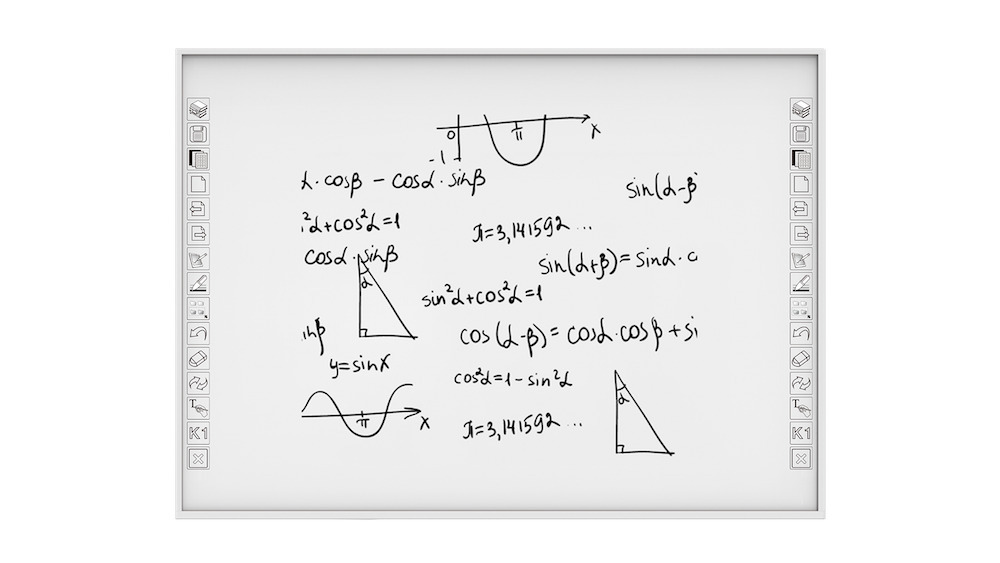 0 π x
-1
α·cosβ - cosα·sinβ
sin(α-β)
²α+cos²α=1
π=3,141592 ...
cosα·sinβ
sin(α+β)=sinα·c
α
sin²α+cos²α=1
inβ
cos(α-β)=cosα·cosβ+si
y=sinx
cos²α=1-sin²α
α
π x
π=3,141592 ...
T
T
K1
K1